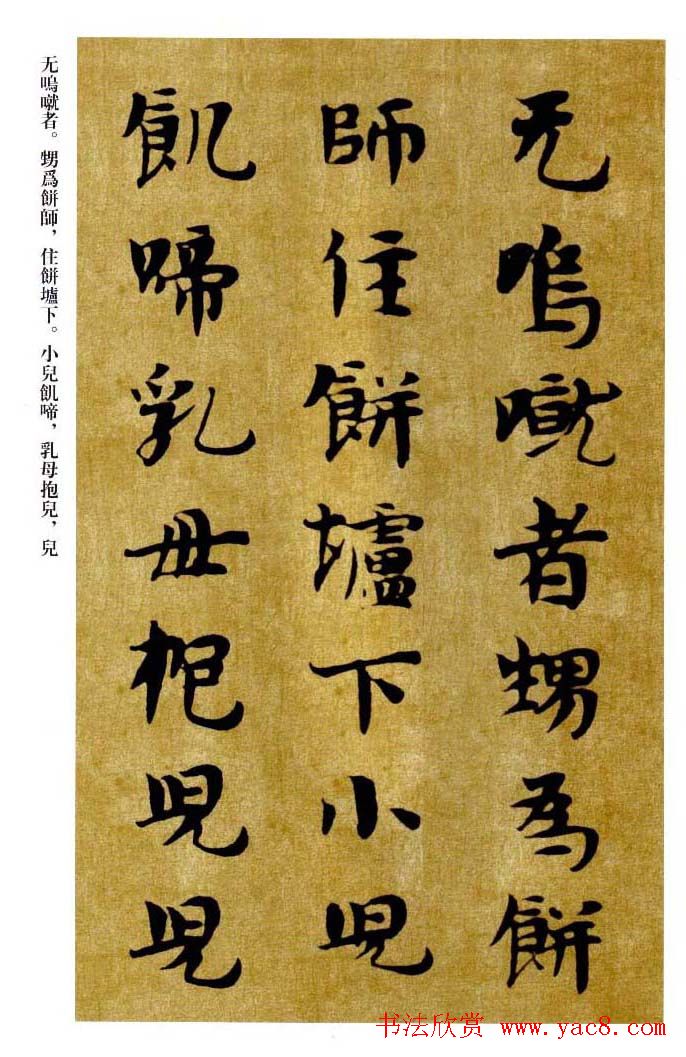 无嗚噈者甥為餅
師住餅壚下小兒
飢啼乳母抱兒兒
无嗚噈者。甥爲餅師，住餅壚下。小兒飢啼，乳母抱兒，兒
书法欣赏 www.yac8.com